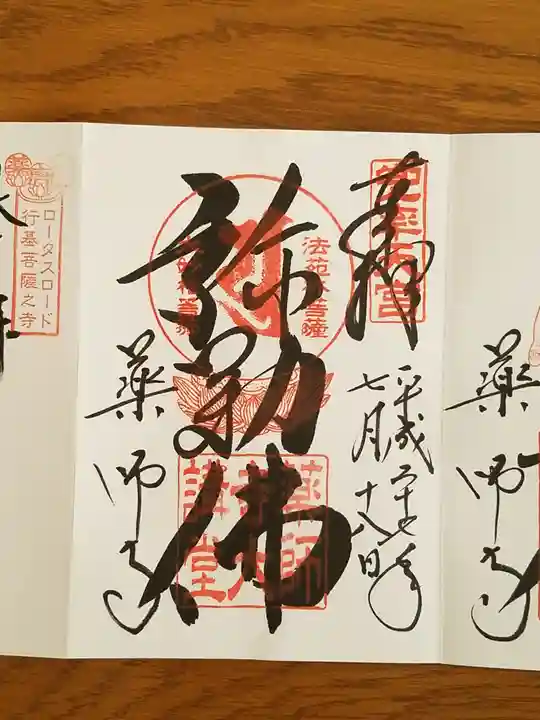 奉拝
平成二十七年
七月十八日
弥勒佛
薬師寺
兜率天宮
法苑林菩薩
大妙相菩薩
薬師寺大講堂
ロータスロード
行基菩薩之寺
薬師寺